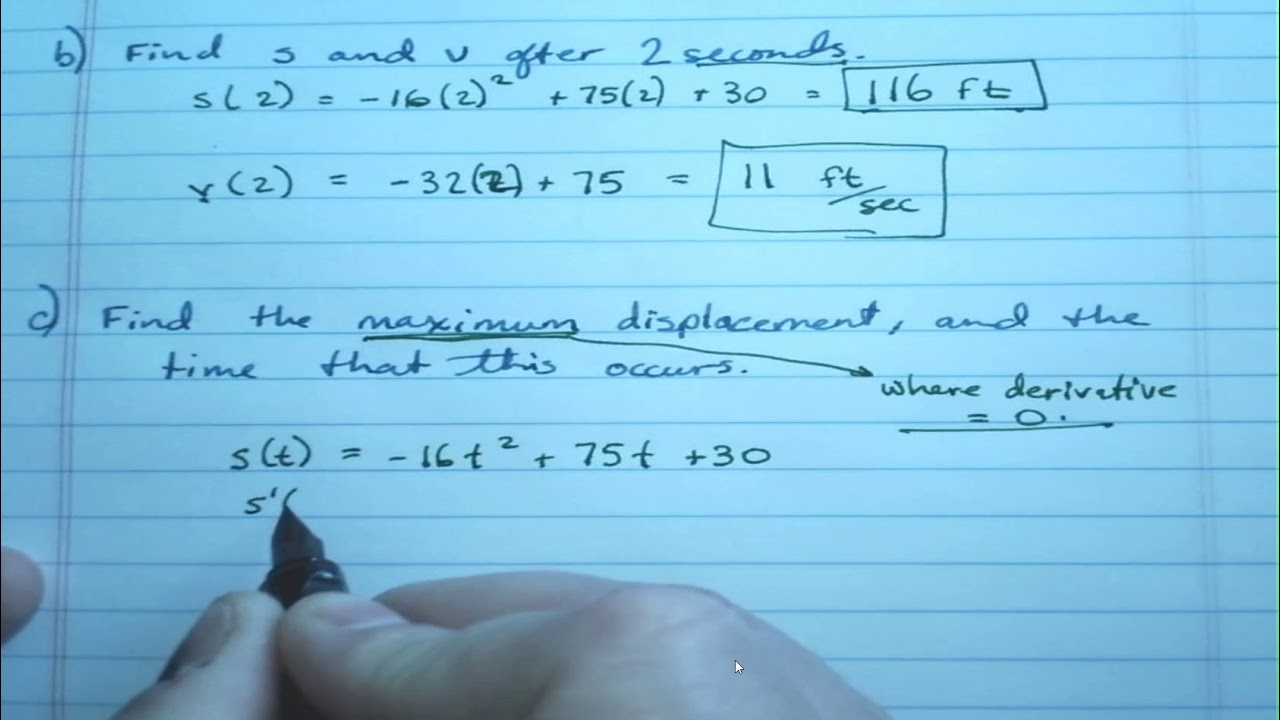 b) Find s and v after 2 seconds.
s(2) = -16(2)² + 75(2) + 30 = 116 ft
v(2) = -32(2) + 75 = 11 ft/sec
c) Find the maximum displacement, and the
time that this occurs.
where derivative
= 0.
s(t) = -16t² + 75t +30
s'(